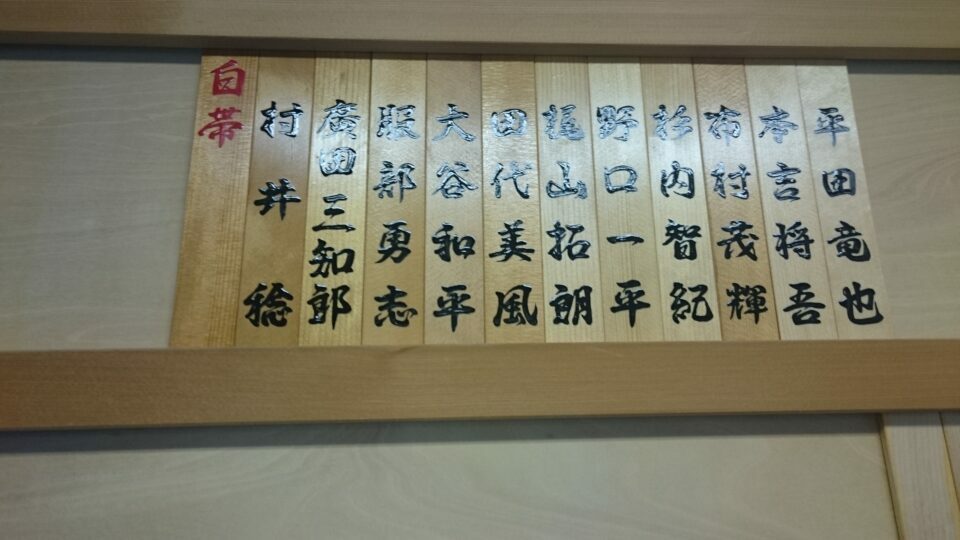 白帯
村井稔
廣田三知郎
服部勇志
大谷和平
田代美風
梶山拓朗
野口一平
杉内智紀
布村茂輝
本吉将吾
平田竜也